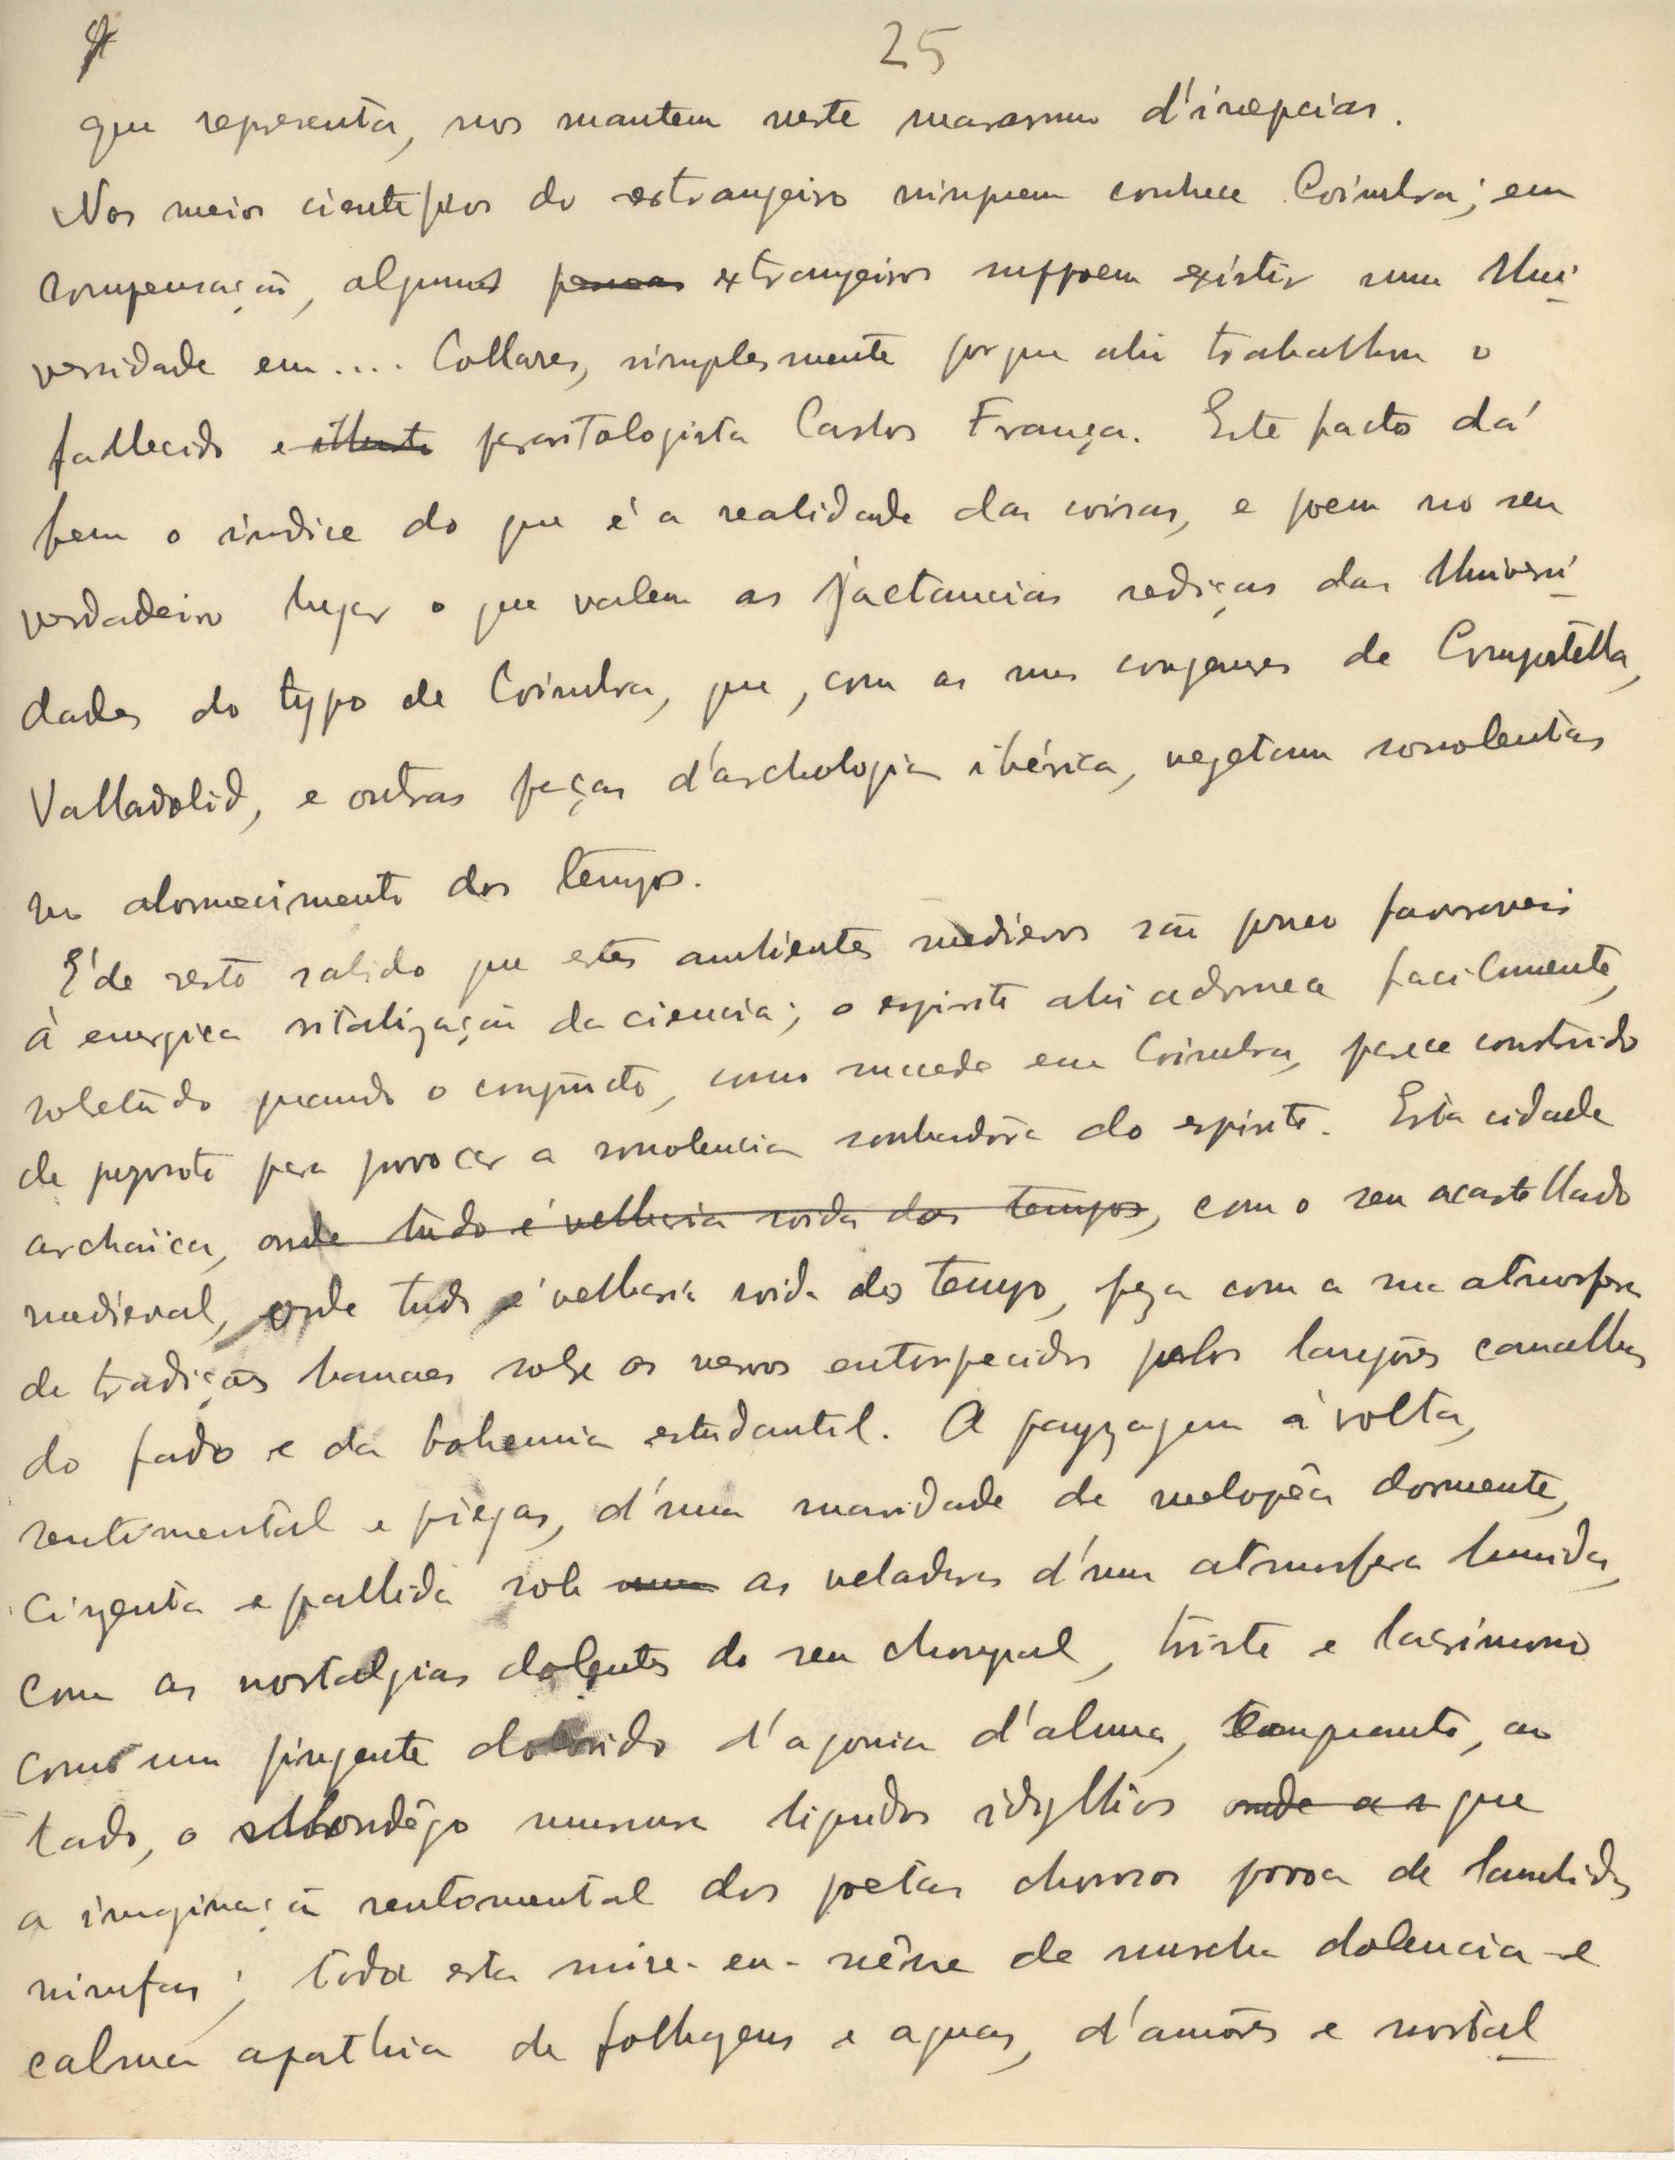 25
que representa, nos mantem neste marasmo d'inepcias.
Nos meios cientificos do estrangeiro ninguem conhece Coimbra; em
compensação, alguns pessoas extrangeiros suppoem existir uma Uni-
versidade em.... Collares, simplesmente porque ahi trabalhou o
fallecido e illustre parasitologista Carlos França. Este facto dá
bem o indice do que é a realidade das coisas, e poem no seu
verdadeiro lugar o que valem as jactancias rediças das Universi-
dades do typo de Coimbra, que, com as suas congeneres de Compostella,
Valladolid, e outras peças d'archologia ibérica, vegetam sonolentas
no adormecimento dos tempos.
É de resto sabido que estes ambientes medievos são pouco favoraveis
á energica vitalização da ciencia; o espirito ahi adormece facilmente,
sobetudo quando o conjuncto, como sucede em Coimbra, parece construido
de preposito para provocar a sonolencia sonhadôra do espirito. Esta cidade
archaïca, onde tudo é velharia roida dos tempos, com o seu acastellado
medieval, onde tudo é velharia roida do tempo, peza com a sua atmosfera
de tradições banaes sobre os nervos entorpecidos pelos langôres canalhas
do fado e da bohemia estudantil. A payzagem á volta,
sentimental e piegas, d'uma suavidade de melopêa dormente,
cizenta e pallida sob uma as veladuras d'uma atmosfera humida,
com as nostalgias dolentes do seu choupal, triste e lacrimoso
como um pingente dolorido d'agonia d'alma, emquanto, ao
lado, o Mondêgo murmura liquidos idyllios onde as que
a imaginação sentimental dos poetas chorosos povoa de lambidas
ninfas; toda esta mise-en-scêne de murcha dolencia e
calma apathia de folhagens e aguas, d'amôres e nostal-